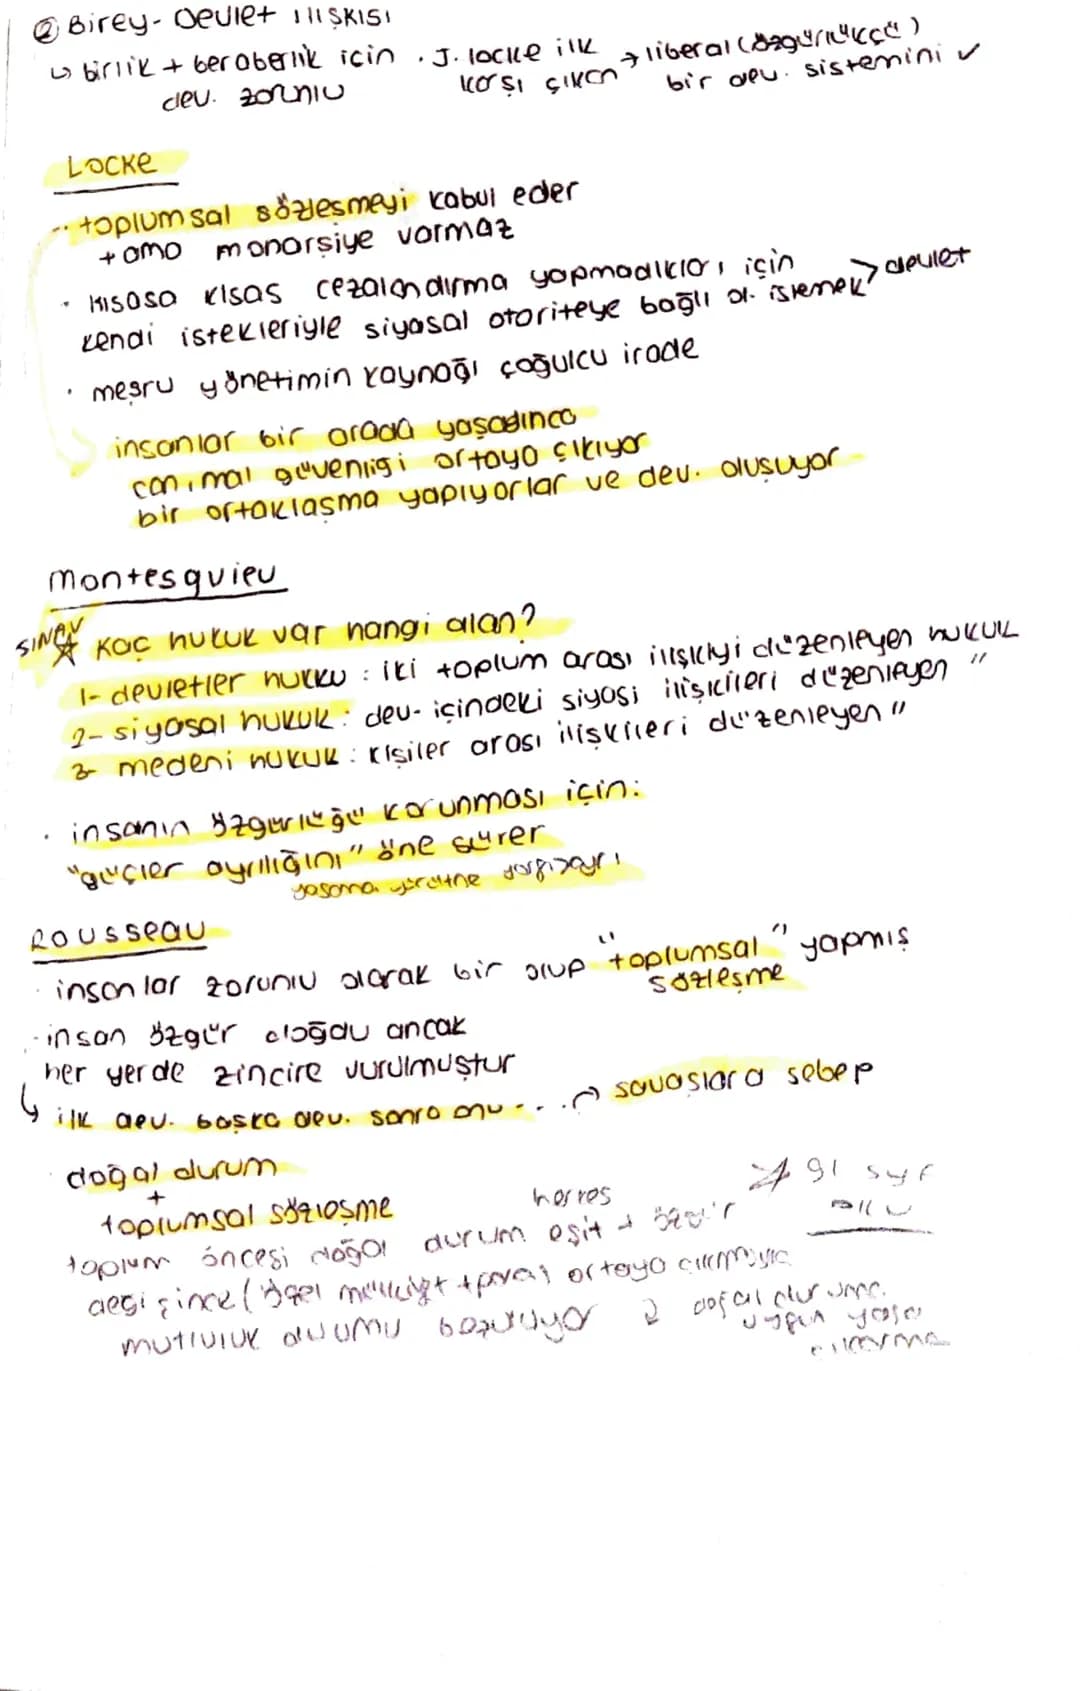 ② Birey-Devlet ilişkisi
↳ birlik + beraberlik için . J. locke ilk → liberal (özgürlükçü)
dev. zorunlu karşı çıkan bir dev. sistemini ✓
Locke
·· toplumsal sözleşmeyi kabul eder
+ ama monarşiye varmaz
· kısasa kısas cezalandırma yapmadıkları için
kendi istekleriyle siyasal otoriteye bağlı ol. istemek > devlet
· meşru yönetimin kaynağı çoğulcu irade
insanlar bir arada yaşadınca
can, mal güvenliği ortaya çıkıyor
bir ortaklaşma yapıyorlar ve dev. oluşuyor
Montesquieu
SINAV ☆ Kaç hukuk var hangi alan?
1- devletler hukku : iki toplum arası ilişkiyi düzenleyen hukuk
2- siyasal hukuk : dev- içindeki siyasi ilişkileri düzenleyen "
3- medeni hukuk : kişiler arası ilişkileri düzenleyen "
· insanın özgürlüğü korunması için:
"güçler ayrılığını" öne sürer
yasama yürütme yargı
Rousseau
· insanlar zorunlu olarak bir olup "toplumsal" yapmış
sözleşme
· insan özgür doğdu ancak
her yerde zincire vurulmuştur
↳ ilk dev. başka dev. sonra onu... → savaşlara sebep
· doğal durum
+
toplumsal sözleşme
herkes
toplum öncesi doğal durum eşit + özgür
değişince (özel mülkiyet + para) ortaya çıkmasıyla
mutluluk durumu bozuluyor
uygun yasa